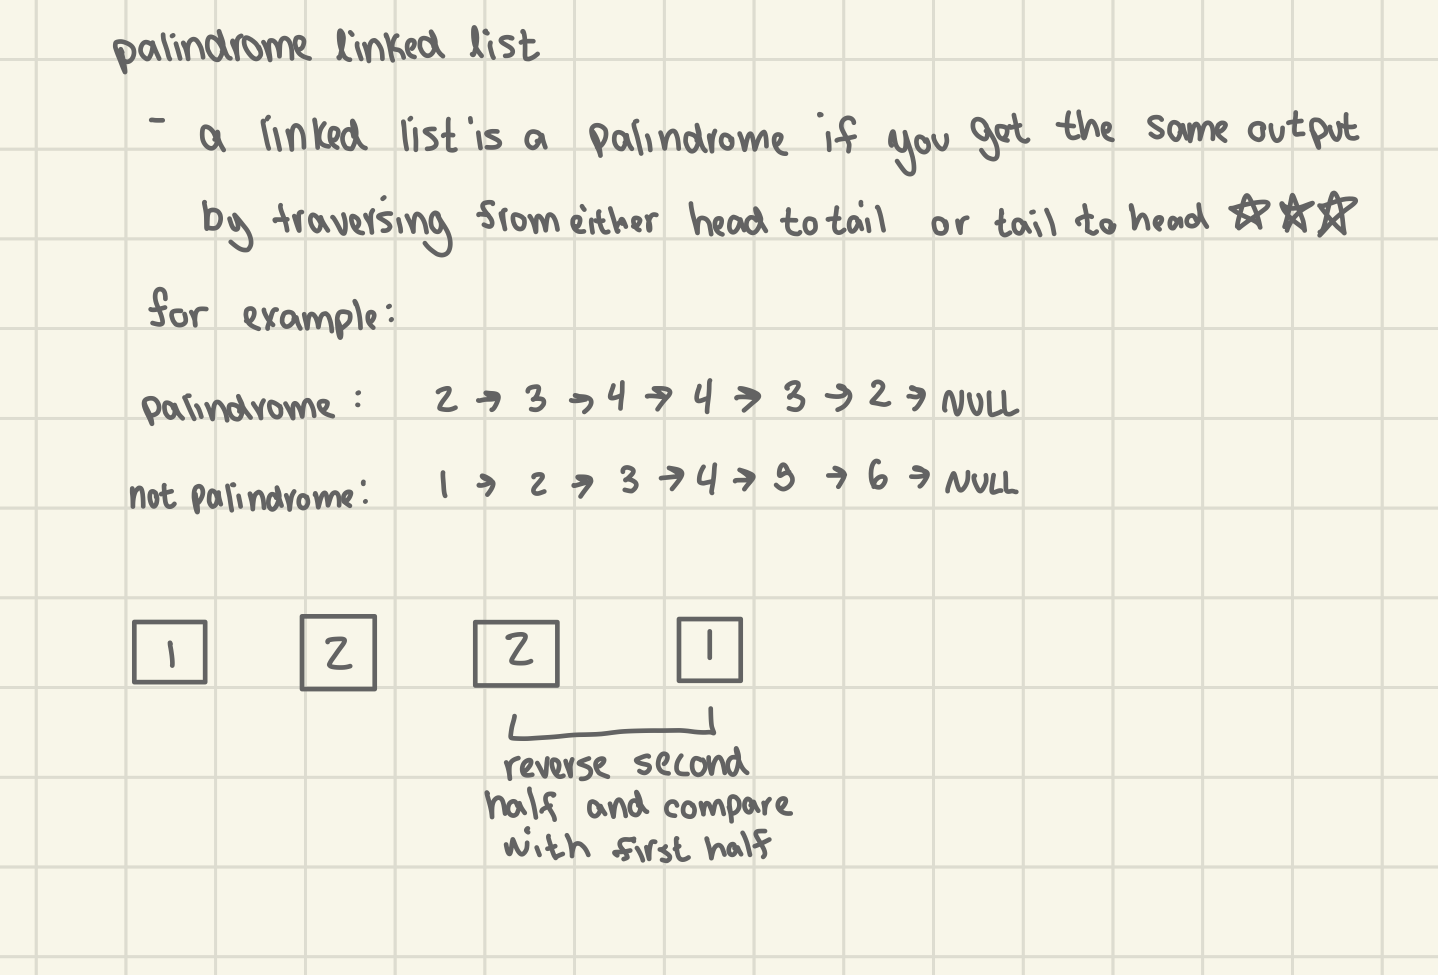 palindrome linked list
- a linked list is a palindrome if you get the same output
by traversing from either head to tail or tail to head ☆☆☆
for example:
palindrome: 2 → 3 → 4 → 4 → 3 → 2 → NULL
not palindrome: 1 → 2 → 3 → 4 → 9 → 6 → NULL
1 2 2 1
reverse second
half and compare
with first half